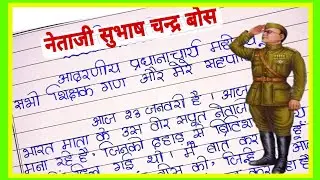 नेताजी सुभाष चन्द्र बोस
आदरणीय प्रधानाचार्य
सभी शिक्षक गण और मेरे सहपाठी
आज 23 जनवरी है। आज
भारत माता के उस वीर सपूत नेताजी
मना रहे हैं, जिनकी दहाड़ से ब्रिटिश
गई थी। मैं बात कर
बोस की,